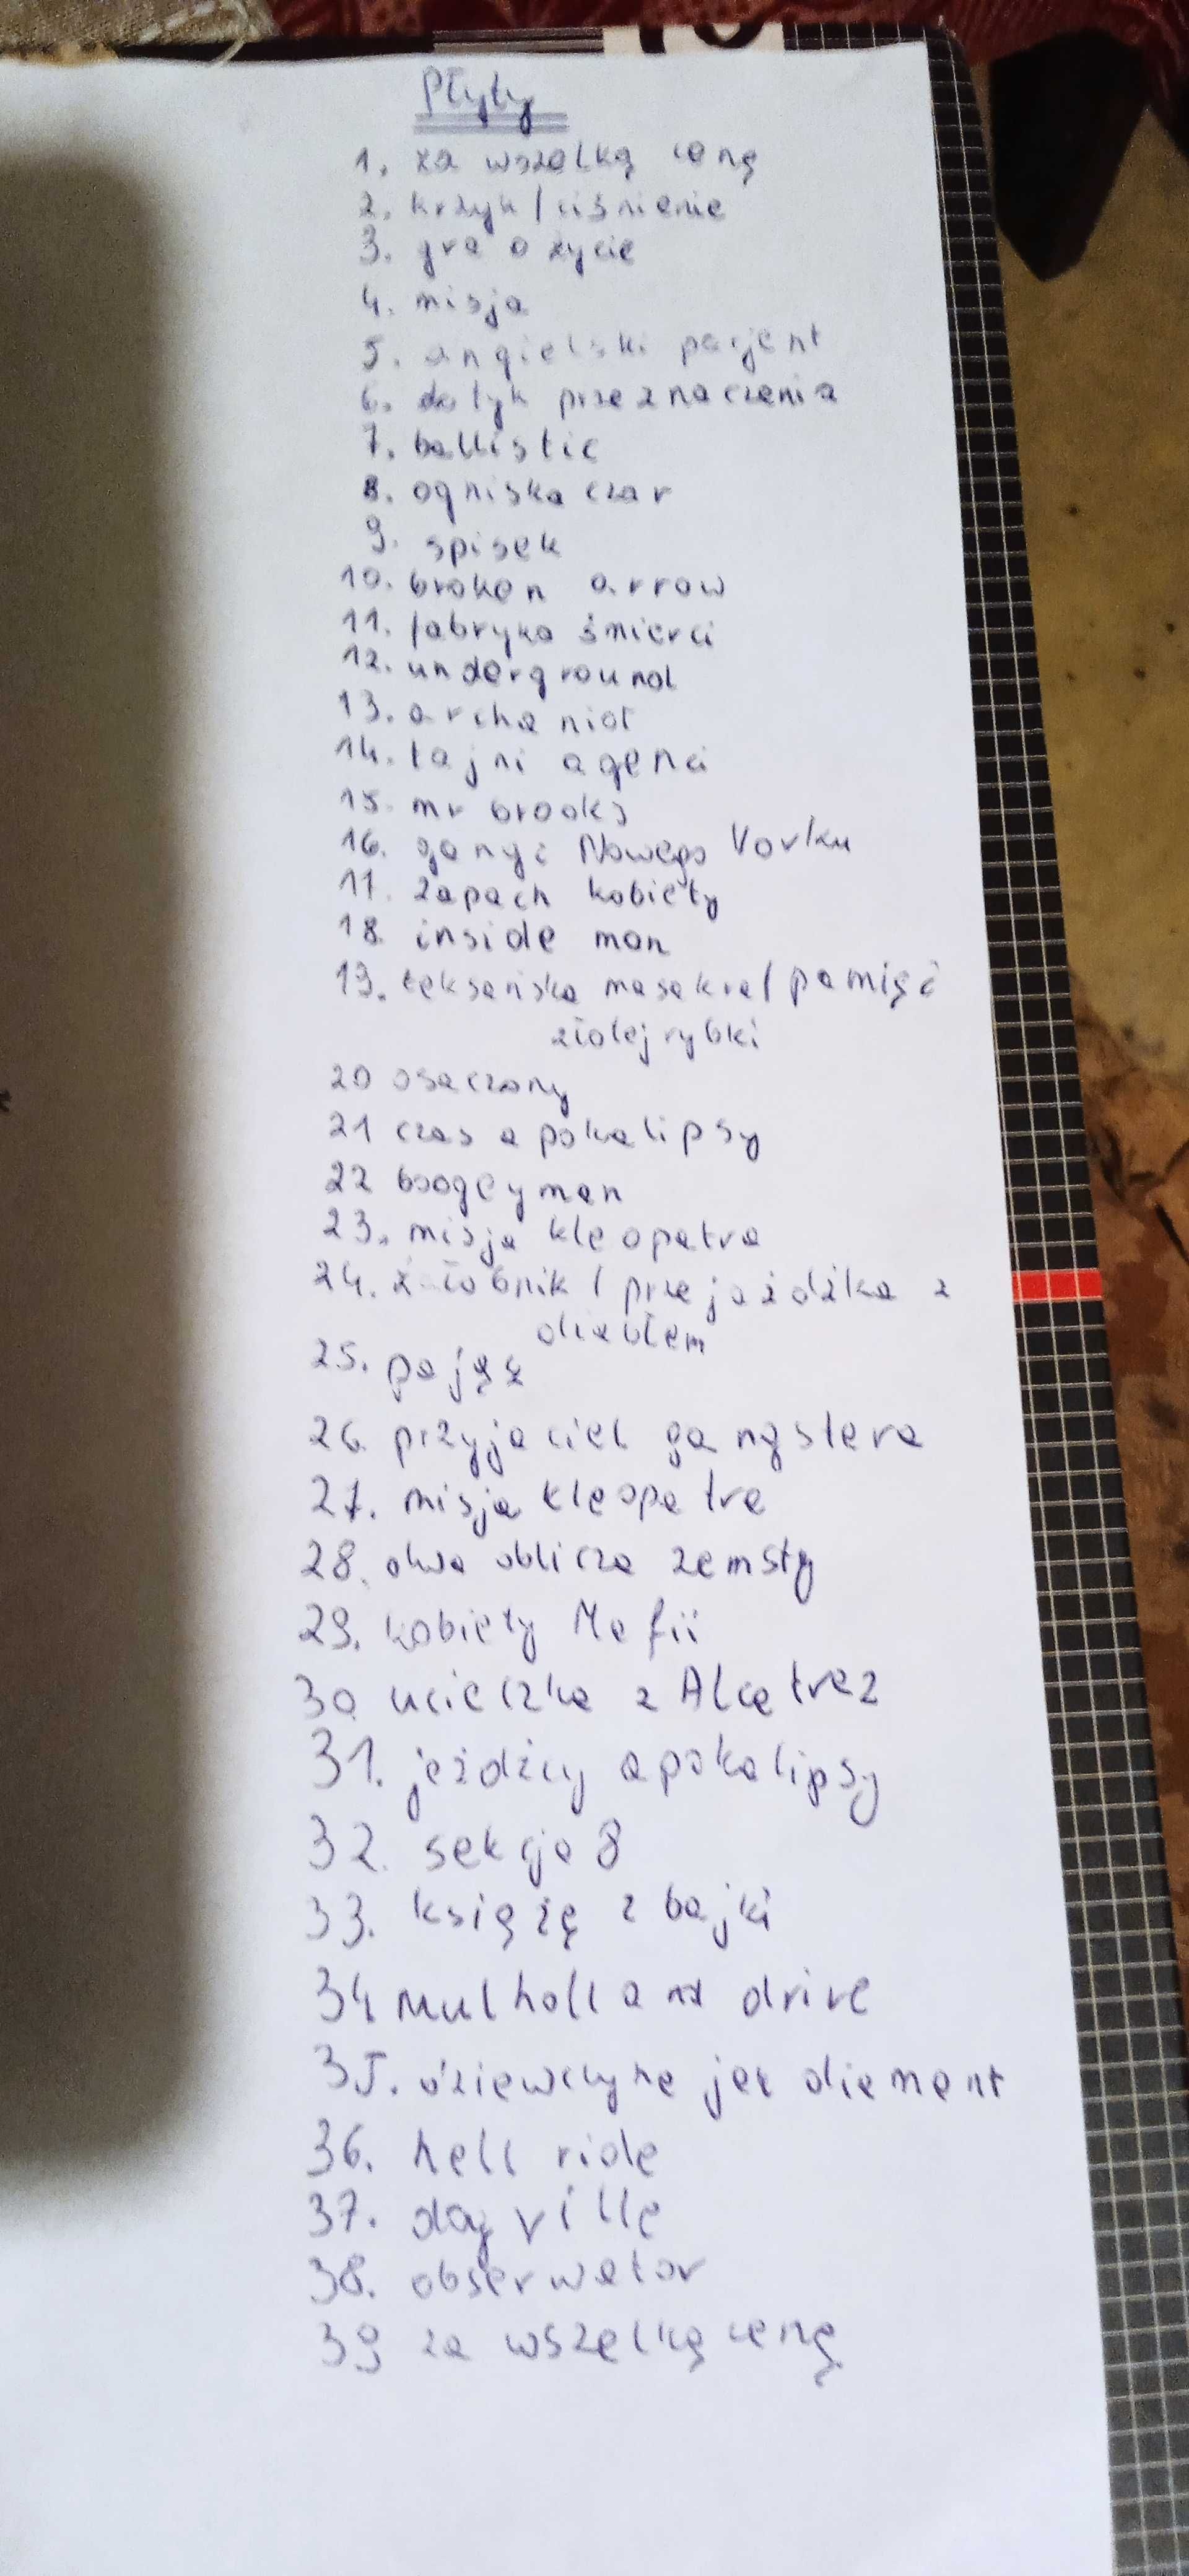 Płyty
1. za wszelką cenę
2. krzyk / ciśnienie
3. gra o życie
4. misja
5. angielski pacjent
6. dotyk przeznaczenia
7. ballistic
8. ogniska czar
9. spisek
10. broken arrow
11. fabryka śmierci
12. underground
13. archanioł
14. tajni agenci
15. mr brooks
16. gangi Nowego Yorku
17. zapach kobiety
18. inside man
19. teksańska masakra / pamięć
złotej rybki
20 osaczony
21 czas apokalipsy
22 boogeyman
23. misja kleopatra
24. żałobnik / przejażdżka z
diabłem
25. pająk
26. przyjaciel gangstera
27. misja kleopatra
28. dwa oblicza zemsty
29. kobiety Mafii
30 ucieczka z Alcatraz
31. jeźdźcy apokalipsy
32. sekcja 8
33. książę z bajki
34 mulholland drive
35. dziewczyna jak diament
36. hell ride
37. dogville
38. obserwator
39 za wszelką cenę